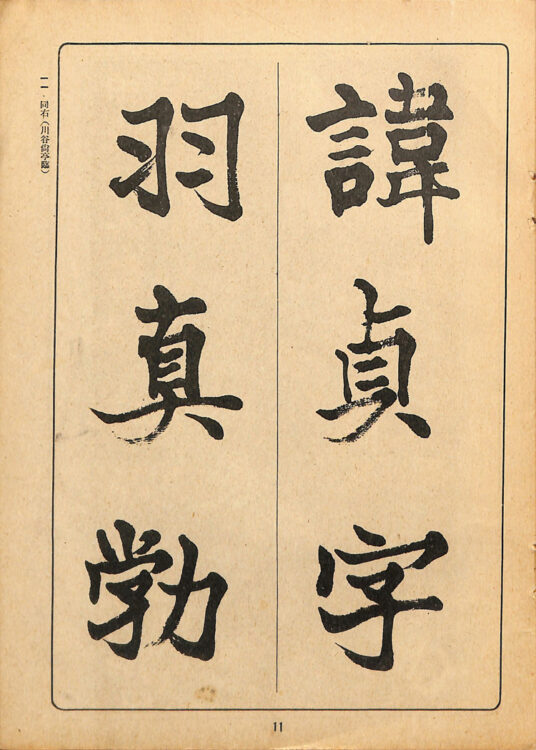 諱貞字
羽真勃
一一、同右(川谷尙亭臨)
11